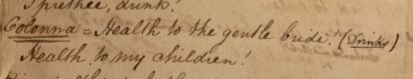 I prethee, drink!
Colonna = Health to the gentle bride! (Drinks)
Health to my children!